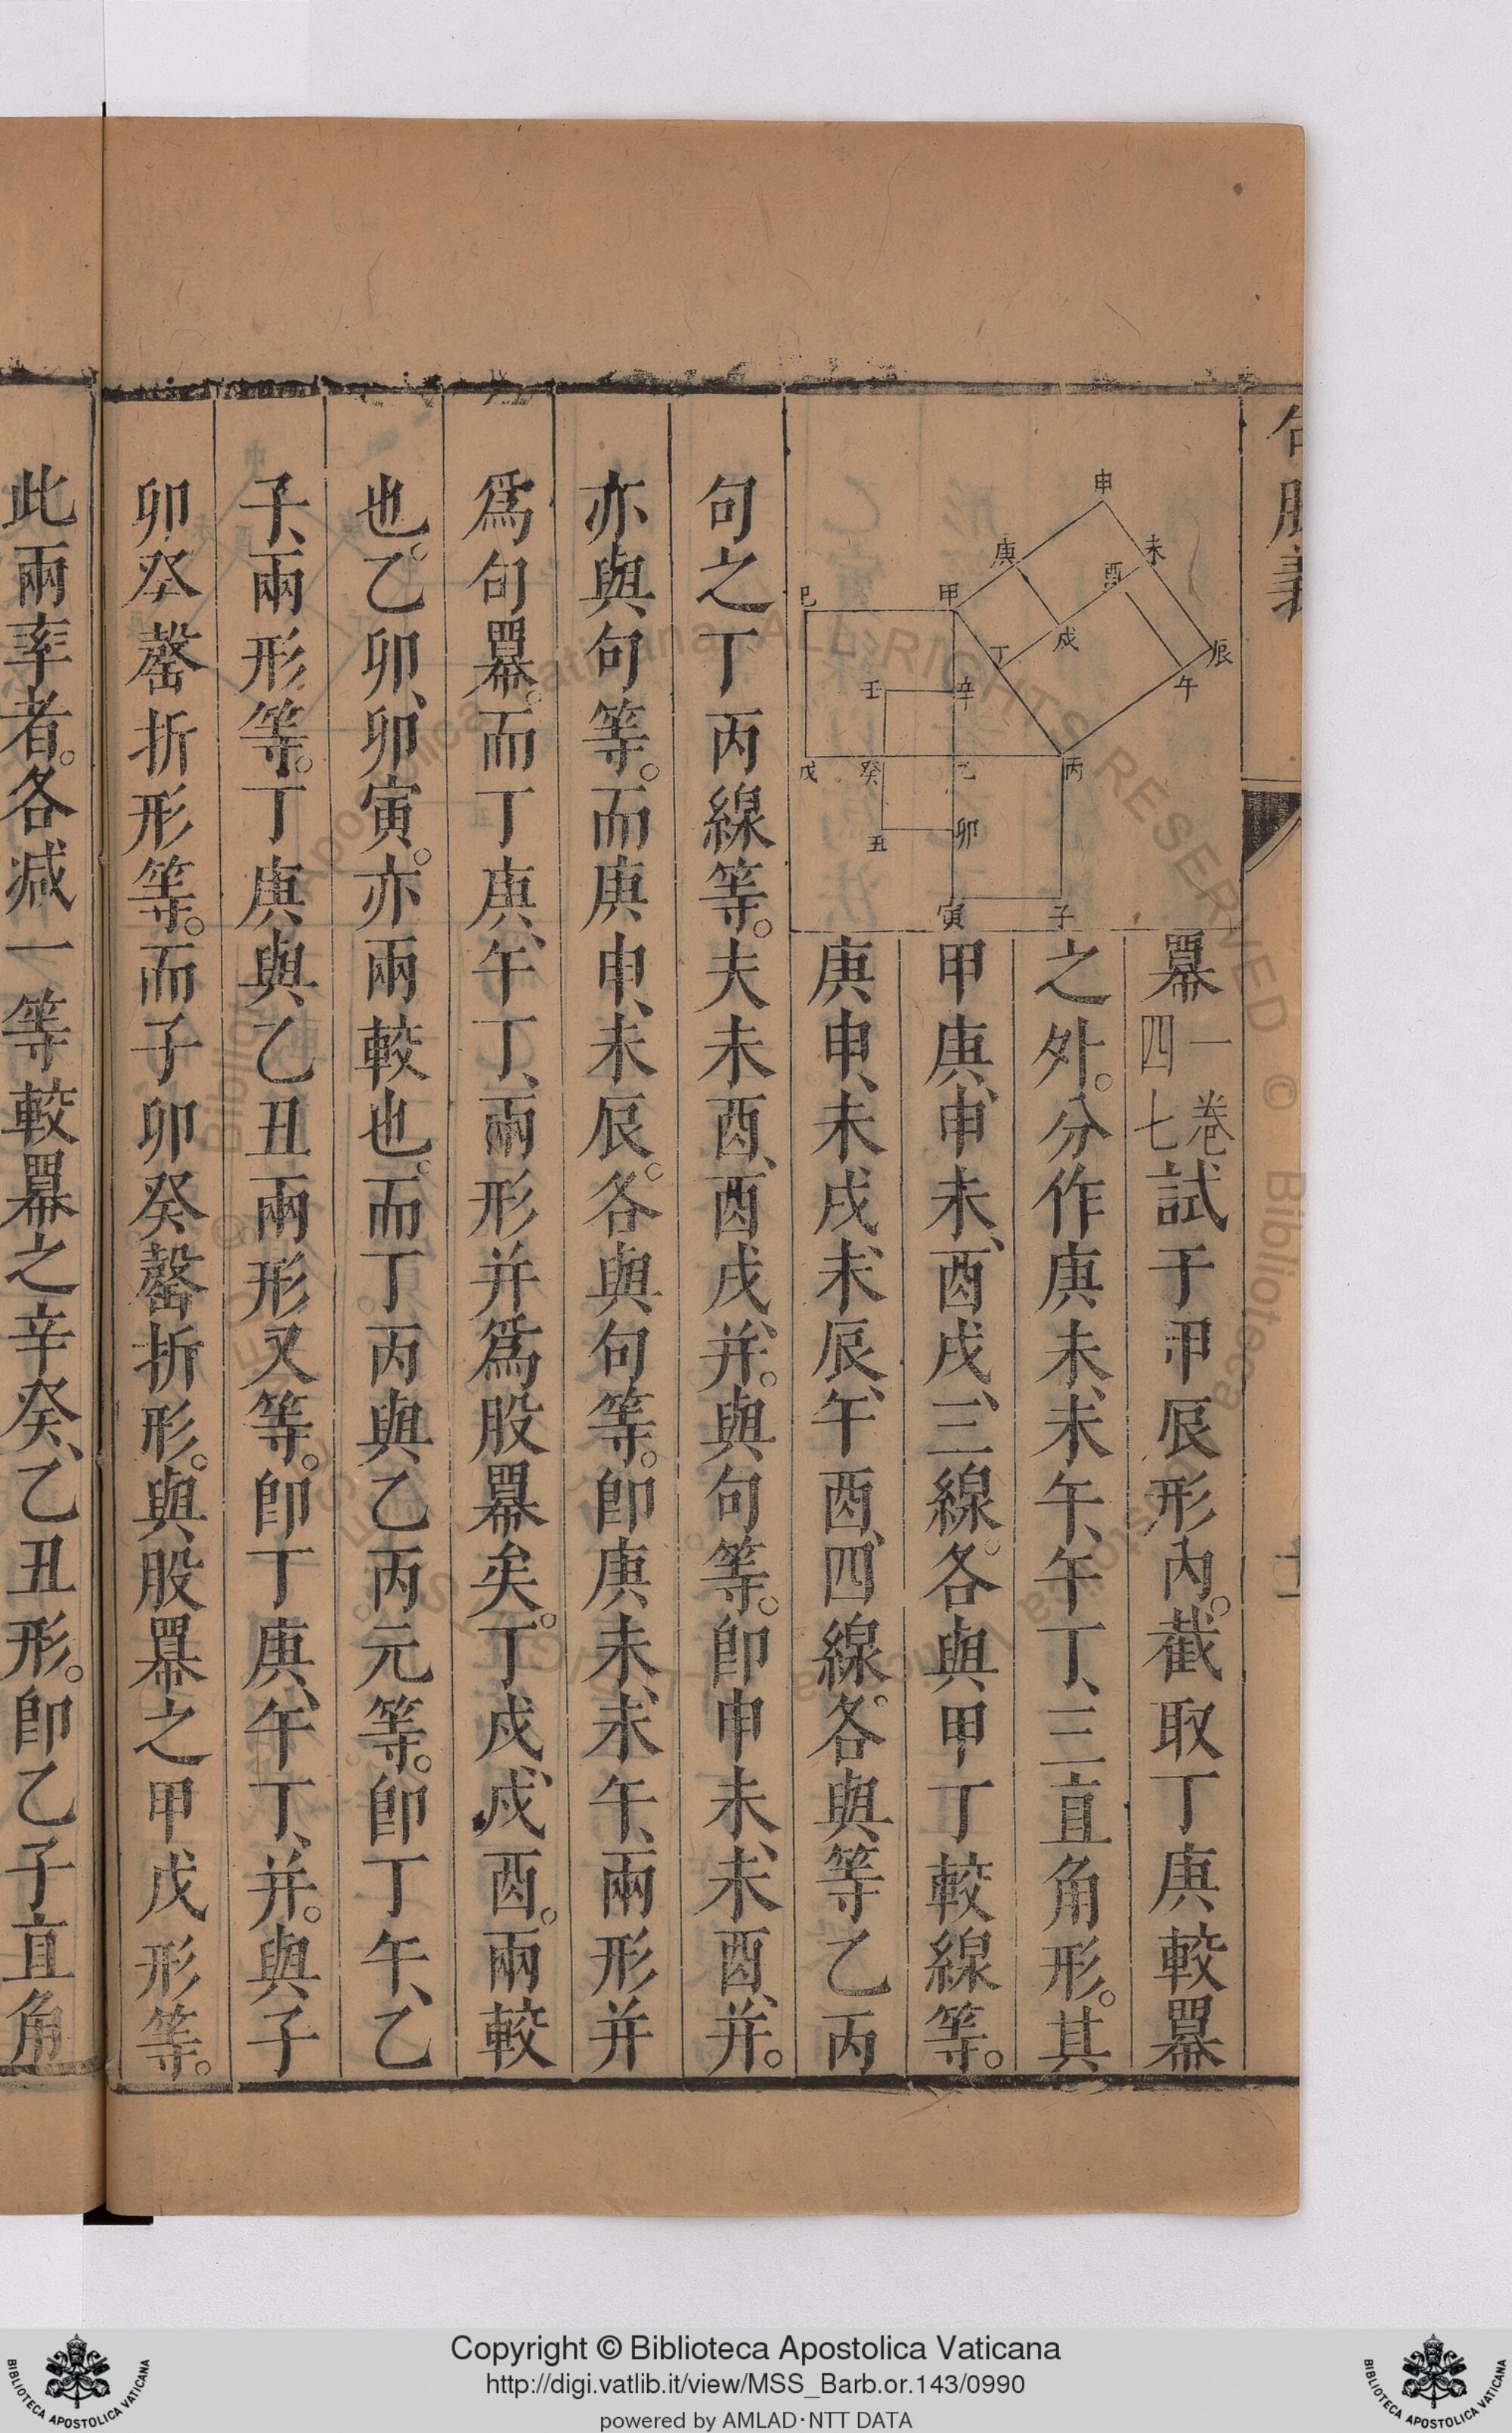 句股義
冪一卷四七試于甲辰形內。截取丁庚較冪
之外。分作庚未、未午、午丁、三直角形。其
甲庚、申未、酉戌、三線。各與甲丁較線等。
庚申、未戌、未辰、午酉、四線。各與等乙丙
句之丁丙線等。夫未酉、酉戌、并。與句等。卽申未、未酉、并。
亦與句等。而庚申、未辰。各與句等。卽庚未、未午、兩形并
爲句冪。而丁庚、午丁、兩形并爲股冪矣。丁戌、戌酉。兩較
也。乙卯、卯寅。亦兩較也。而丁丙與乙丙元等。卽丁午、乙
子、兩形等。丁庚與乙丑兩形又等。卽丁庚、午丁、并。與子
卯癸罄折形等。而子卯癸罄折形。與股冪之甲戊形等。
此兩率者。各減一等較冪之辛癸、乙丑形。卽乙子直角
申
庚
未
酉
巳
甲
戌
丁
辰
午
壬
辛
戊
癸
乙
丙
丑
卯
寅
子
Copyright © Biblioteca Apostolica Vaticana
http://digi.vatlib.it/view/MSS_Barb.or.143/0990
powered by AMLAD·NTT DATA
BIBLIOTECA APOSTOLICA VATICANA
BIBLIOTECA APOSTOLICA VATICANA